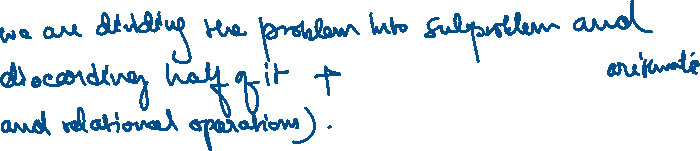 we are dividing the problem into subproblem and
discarding half of it + arithmatic
and relational operations).